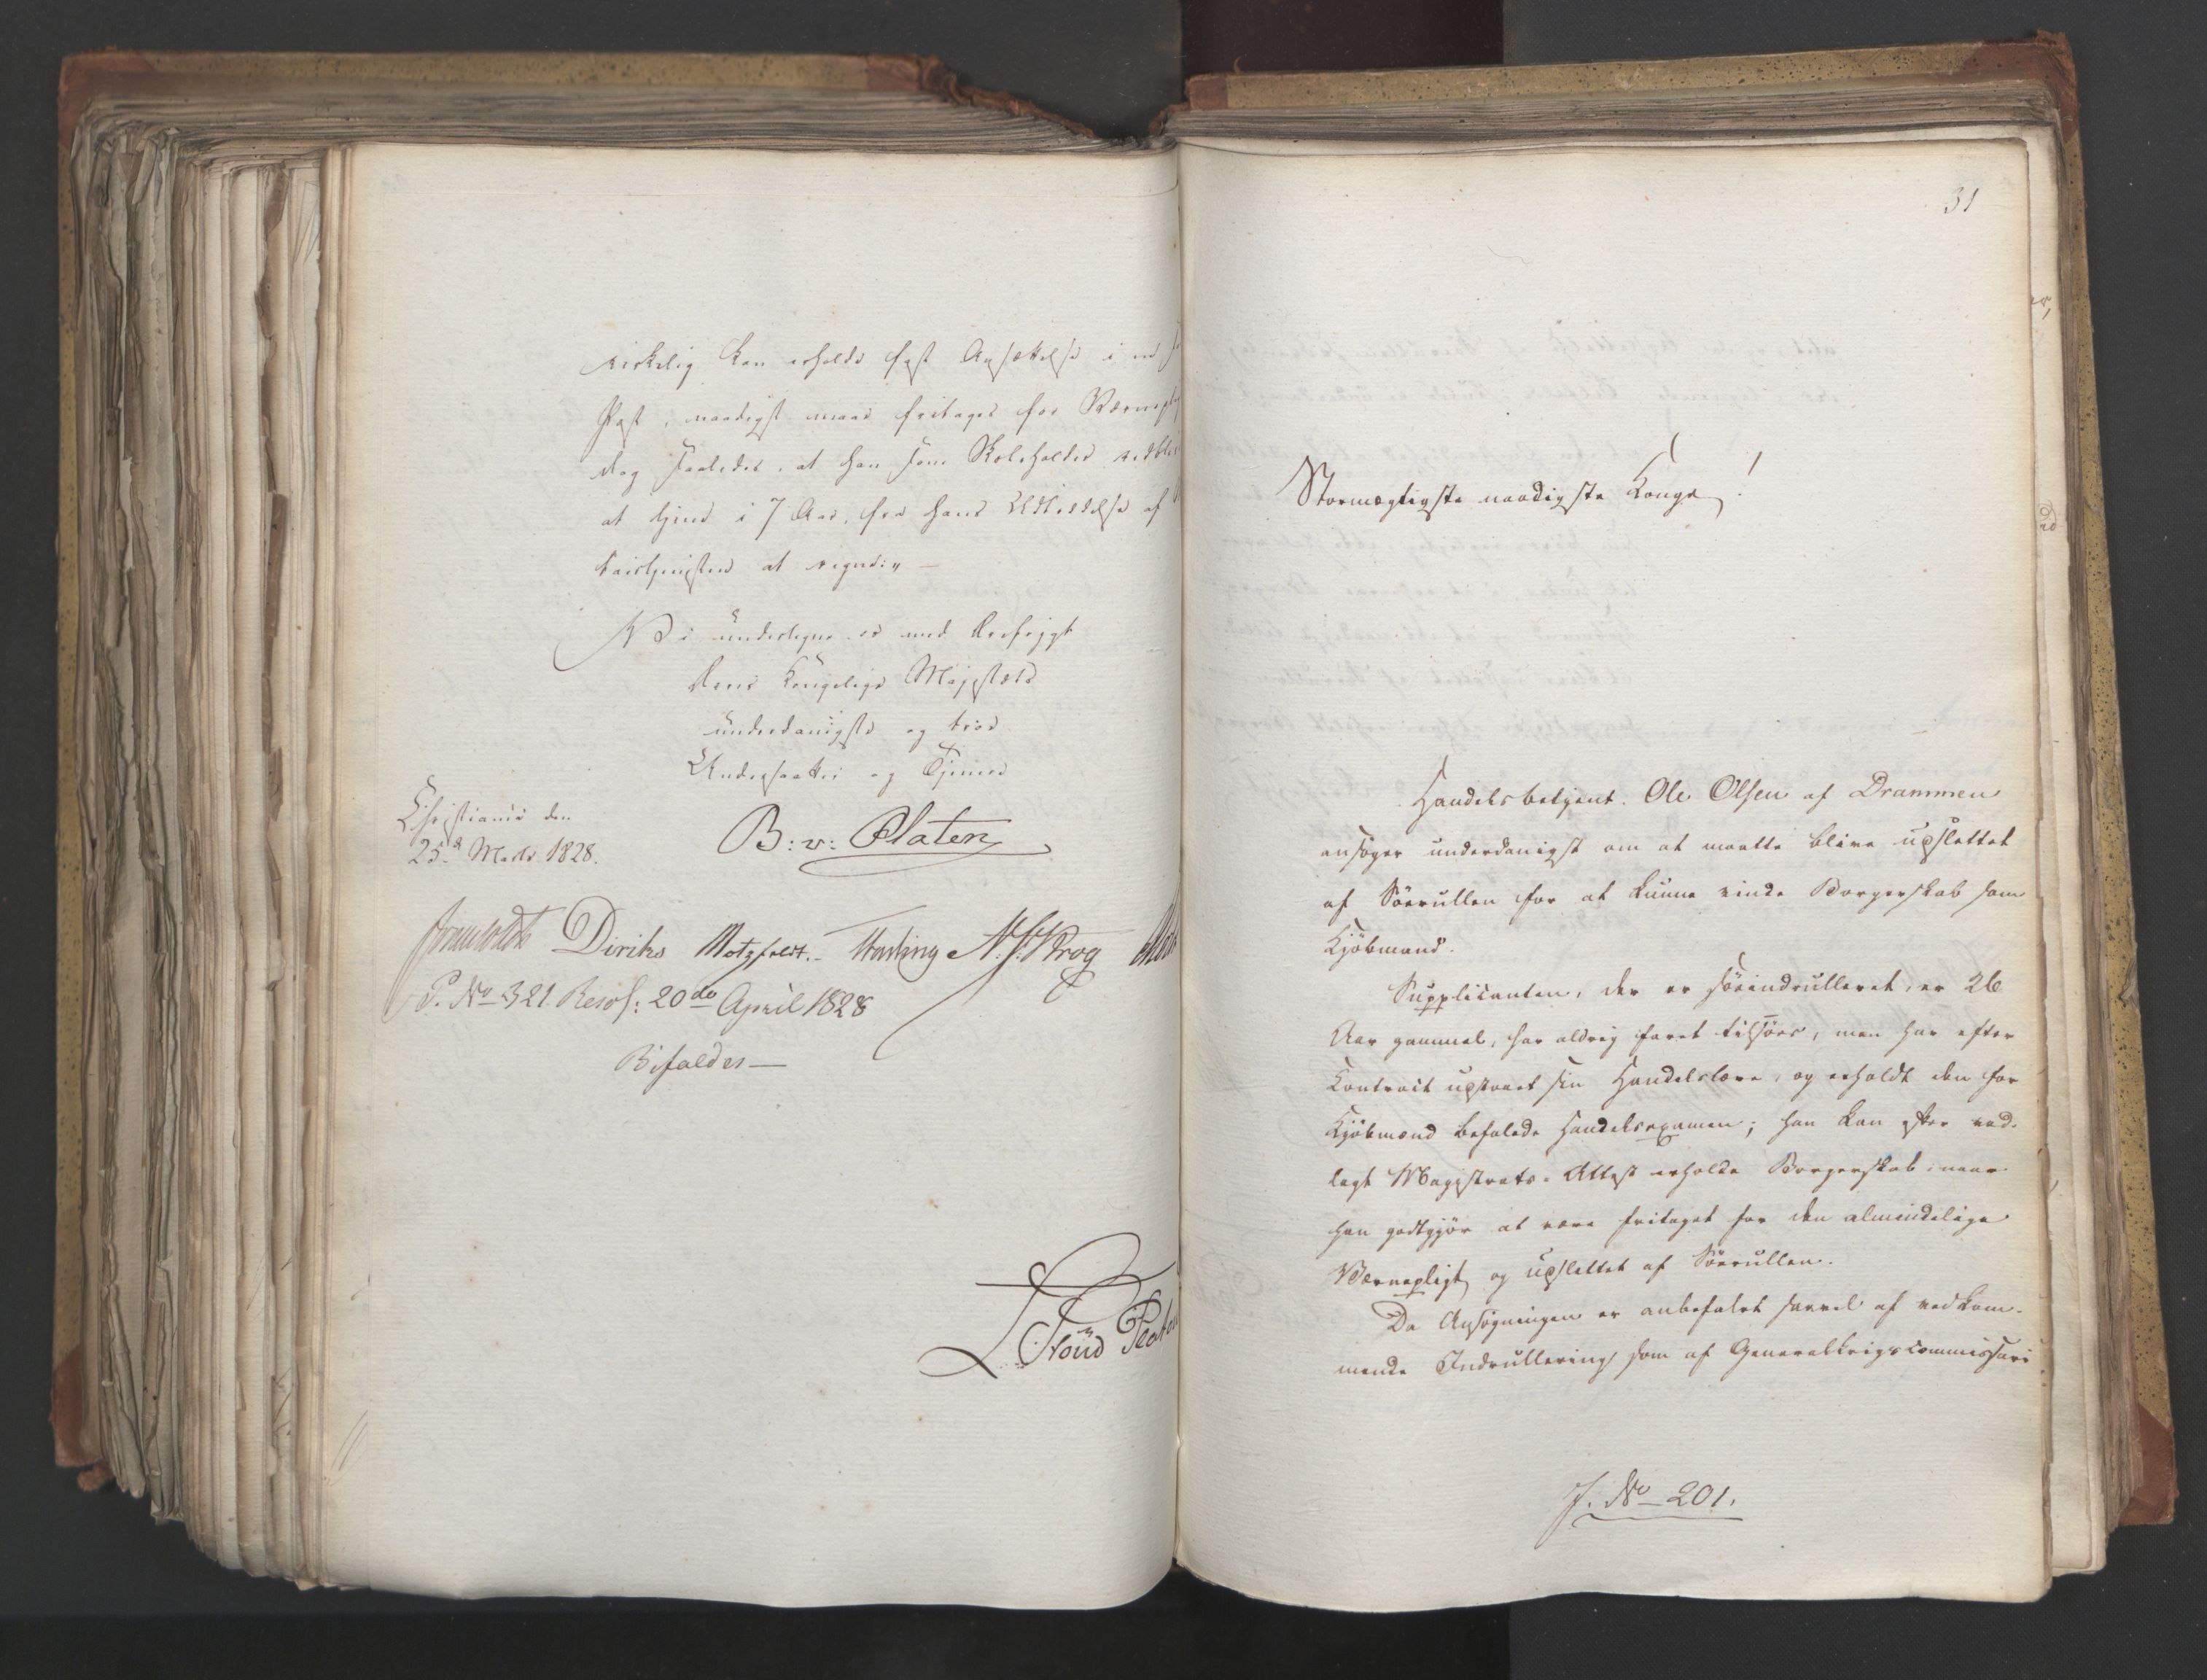 virkelig kan erholde fast Ansættelse i en
Post, naadigst maae fritages for Værnepl
dog saaledes, at han som Skoleholder vedbli
at tjene i 7 Aar, fra hans Udtrædelse af
tairtjenesten at regne."
Vi undertegne os med Ærefrygt
Deres Kongelige Majestæts
underdanigste og troe
Undersaatter og Tjenere
Christiania den
25de Marts 1828.
B: v: Platen
Diriks Motzfeldt. N. J. Krog
P. No 321. Resol: 20de April 1828
Bifaldes —
31
Stormægtigste naadigste Konge!
Handelsbetjent Ole Olsen af Drammen
ansøger underdanigst om at maatte blive udslettet
af Söerullen for at kunne vinde Borgerskab som
Kjöbmand.
Supplicanten, der er söeindrulleret, er 26
Aar gammel, har aldrig faret tilsöes, men har efter
Contract udstaaet sin Handelslære, og erholdt den for
Kjöbmænd befalede Handelsexamen; han kan efter ved-
lagt Magistrats-Attest erholde Borgerskab, naar
han godtgjör at være fritaget for den almindelige
Værnepligt og udslettet af Söerullen.
Da Ansögningen er anbefalet saavel af vedkom-
mende Indrullering som af Generalkrigscommissari
J. No 201.